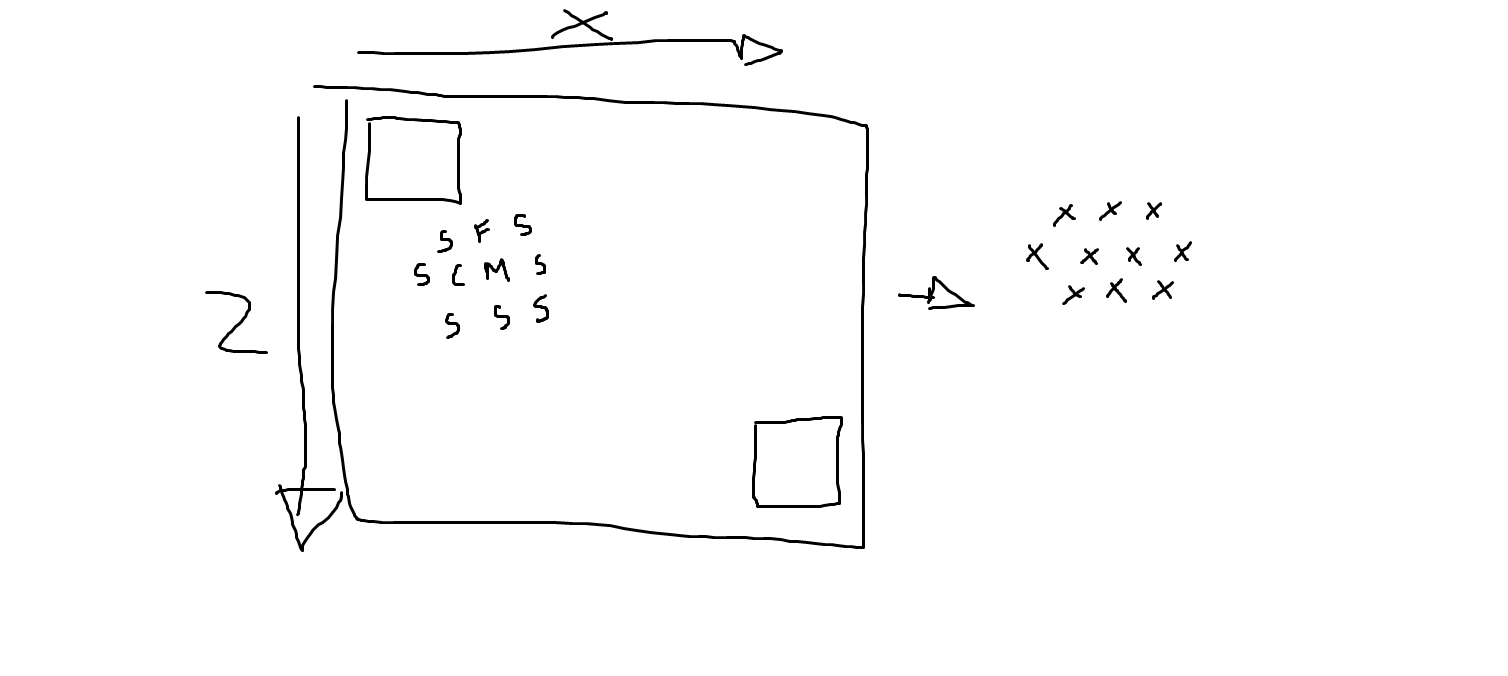 X
S F S
S C M S
S S S
x x x
x x x x
x x x
2